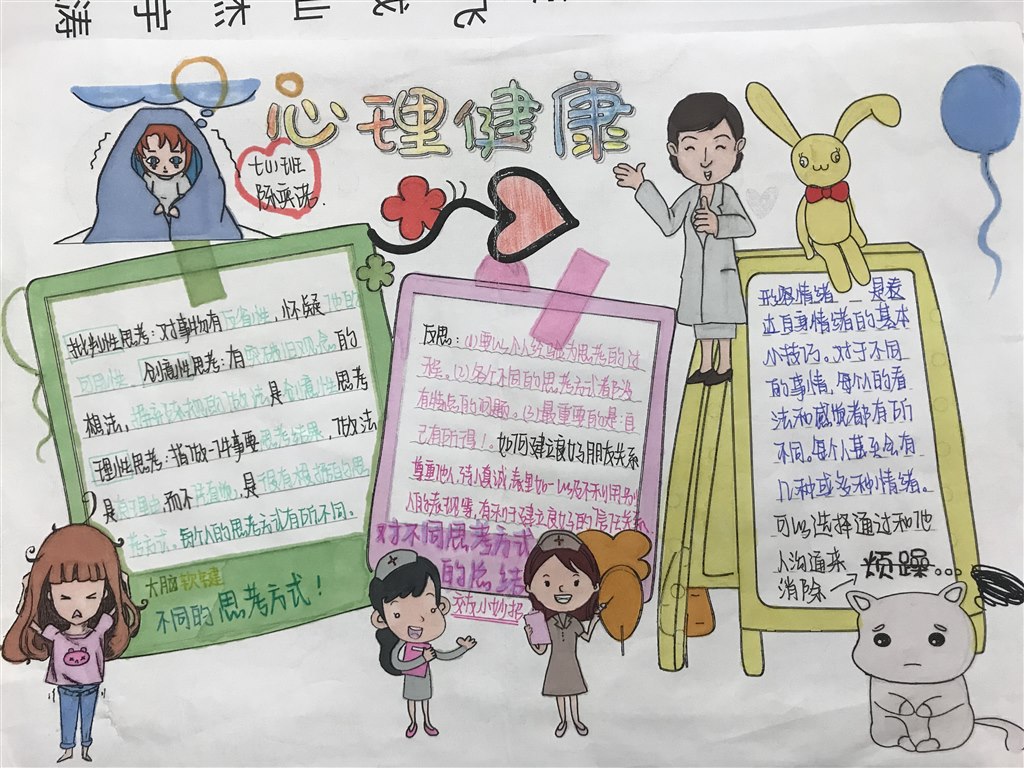 涛 宇 杰 山 成 飞
心理健康
七(1)班
批判性思考：对事物有反省性，怀疑
创意性思考：有
的
想法，
是创意性思考
理性思考：指做一件事要思考结果，做法
是
而不
，是
思考方式。每个人的思考方式有所不同。
大脑软键
不同的思考方式！
反思：(1)要以个人经验为思考的过
程。(2)各个不同的思考方式有没
有特点的问题。(3)最重要的是：自
己有所得！。如何建立良好朋友关系
尊重他人，待人真诚，表里如一以及不利用别
人的
有利于建立良好的
对不同思考方式
的总结
交友小妙招
形容情绪 是表
达自身情绪的基本
小技巧。对于不同
的事情，每个人的看
法和感观都有所
不同。每个人甚至会有
几种或多种情绪。
可以选择通过和他
人沟通来
消除→烦躁...